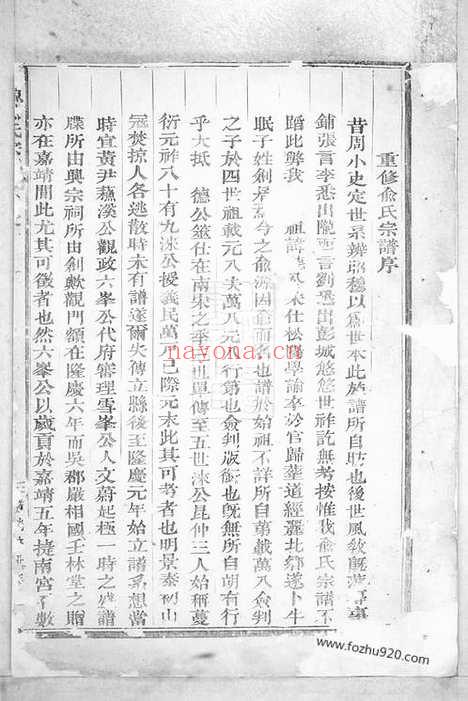 重修俞氏宗譜序
昔周小史定世系辨昭穆以爲世本此族譜所自昉也後世風敎
鋪張言李悉出隴西言劉悉出彭城悠悠世祚訖無考按惟我俞氏宗譜不
蹈此弊我 祖諱 宋仕松陽學諭卒於官歸葬道經麗北鄉遂卜牛
眠子姓創居焉今之俞源因俞而名也譜於始祖不詳所自第載萬八僉判
之子於四世祖載元八夫萬八元八行第也僉判版銜也旣無所自胡有行
乎大抵 德公筮仕在南宋之季世單傳至五世淶公昆仲三人始稱蔓
衍元祚八十有九淶公授義民萬元已際元末此其可考者也明景泰初山
寇焚掠人各逃散時未有譜遂爾失傳立縣後至隆慶元年始立譜系想當
時宜黃尹蘓溪公觀政六峯公代府審理雪峯公人文蔚起極一時之 譜
牒所由興宗祠所由創歟觀門額在隆慶六年而吳郡嚴相國玉林堂之贈
亦在嘉靖間此尤其可徵者也然六峯公以歲貢於嘉靖五年捷南宮 數
www.fozhu920.com
nayona.cn